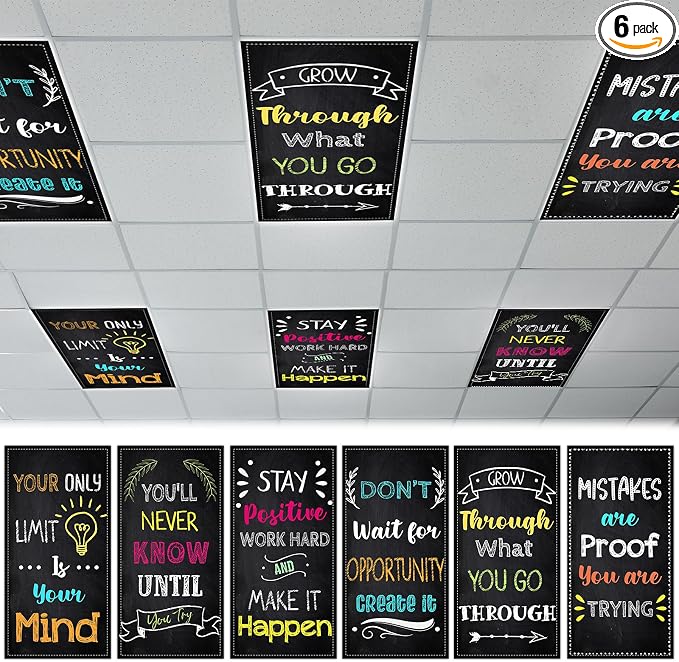 6 pack
N'T
t for
ORTUNITY
Create it
GROW
Through
What
YOU GO
THROUGH
MISTA
are
Proof
You are
TRYING
YOUR ONLY
LIMIT
Is
Your
Mind
STAY
Positive
WORK HARD
AND
MAKE IT
Happen
YOU'LL
NEVER
KNOW
UNTIL
You Try
YOUR ONLY
LIMIT
Is
Your
Mind
YOU'LL
NEVER
KNOW
UNTIL
You Try
STAY
Positive
WORK HARD
AND
MAKE IT
Happen
DON'T
Wait for
OPPORTUNITY
Create it
GROW
Through
What
YOU GO
THROUGH
MISTAKES
are
Proof
You are
TRYING